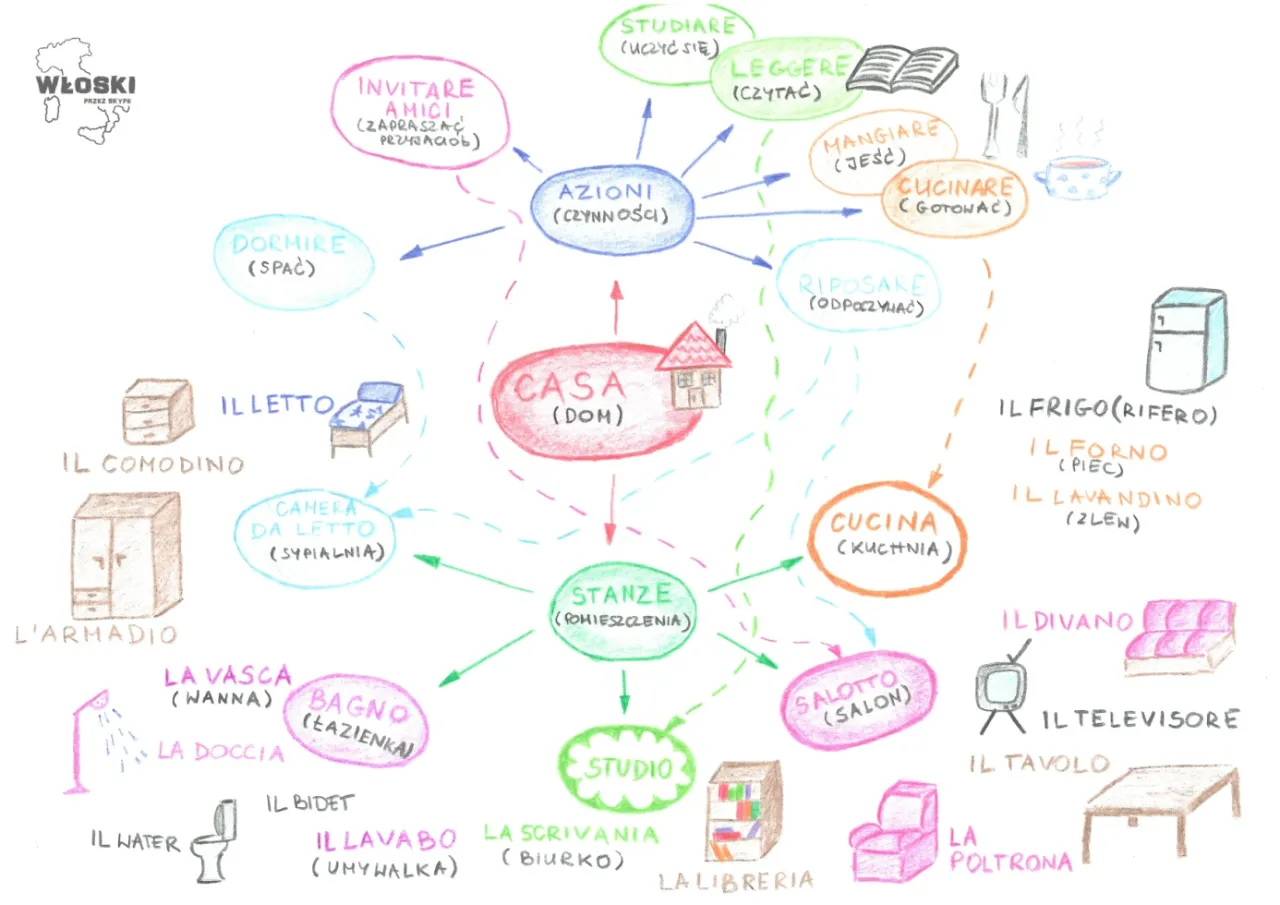 WŁOSKI
PRZEZ SKYPE
STUDIARE
(UCZYĆ SIĘ)
LEGGERE
(CZYTAĆ)
INVITARE
AMICI
(ZAPRASZAĆ
PRZYJACIÓŁ)
MANGIARE
(JEŚĆ)
CUCINARE
(GOTOWAĆ)
AZIONI
(CZYNNOŚCI)
DORMIRE
(SPAĆ)
RIPOSARE
(ODPOCZYWAĆ)
CASA
(DOM)
IL LETTO
IL COMODINO
IL FRIGO(RIFERO)
IL FORNO
(PIEC)
IL LAVANDINO
(ZLEW)
CAMERA
DA LETTO
(SYPIALNIA)
CUCINA
(KUCHNIA)
L'ARMADIO
STANZE
(POMIESZCZENIA)
IL DIVANO
LA VASCA
(WANNA)
BAGNO
(ŁAZIENKA)
SALOTTO
(SALON)
IL TELEVISORE
LA DOCCIA
STUDIO
IL TAVOLO
IL BIDET
IL WATER
IL LAVABO
(UMYWALKA)
LA SCRIVANIA
(BIURKO)
LA LIBRERIA
LA
POLTRONA